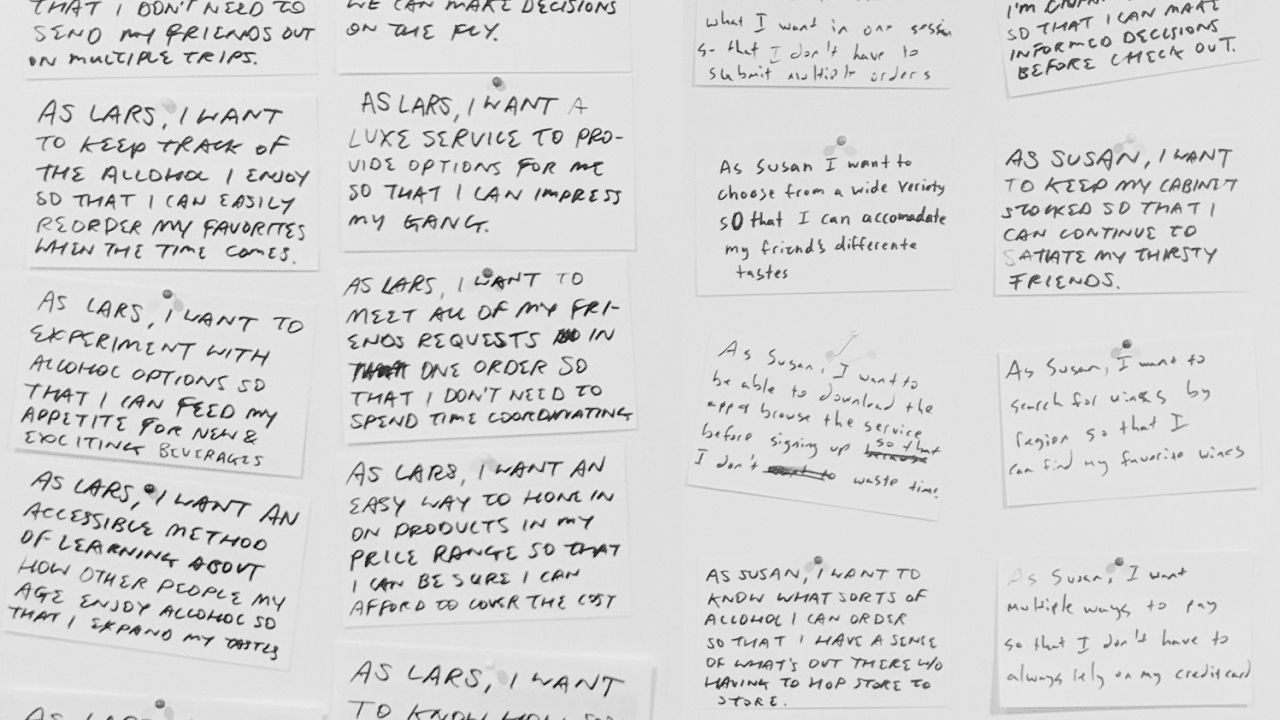 THAT I DON'T NEED TO
SEND MY FRIENDS OUT
ON MULTIPLE TRIPS.
AS LARS, I WANT
TO KEEP TRACK OF
THE ALLOHOL I ENJOY
SO THAT I CAN EASILY
REORDER MY FAVORITES
WHEN THE TIME COMES.
AS LARS, I WANT TO
EXPERIMENT WITH
ALCOHOL OPTIONS SO
THAT I CAN FEED MY
APPETITE FOR NEW &
EXCITING BEVERAGES
AS LARS, I WANT AN
ACCESSIBLE METHOD
OF LEARNING ABOUT
HOW OTHER PEOPLE MY
AGE ENJOY ALCOHOL SO
THAT I EXPAND MY TASTES
AS LARS
WE CAN MAKE DECISIONS
ON THE FLY.
AS LARS, I WANT A
LUXE SERVICE TO PRO-
VIDE OPTIONS FOR ME
SO THAT I CAN IMPRESS
MY GANG.
AS LARS, I WANT TO
MEET ALL OF MY FRI-
ENDS REQUESTS IN
ONE ORDER SO
THAT I DON'T NEED TO
SPEND TIME COORDINATING
AS LARS, I WANT AN
EASY WAY TO HONE IN
ON PRODUCTS IN MY
PRICE RANGE SO THAT
I CAN BE SURE I CAN
AFFORD TO COVER THE COST
AS LARS, I WANT
TO KNOW HOW
what I want in one session
so that I don't have to
submit multiple orders
As Susan I want to
choose from a wide veriaty
so that I can accomadate
my friend's differente
tastes
As Susan, I want to
be able to download the
app & browse the service
before signing up so that
I don't waste time.
AS SUSAN, I WANT TO
KNOW WHAT SORTS OF
ALCOHOL I CAN ORDER
SO THAT I HAVE A SENSE
OF WHAT'S OUT THERE W/O
HAVING TO HOP STORE TO
STORE.
I'M
SO THAT I CAN MAKE
INFORMED DECISIONS
BEFORE CHECK OUT.
AS SUSAN, I WANT
TO KEEP MY CABINET
STOCKED SO THAT I
CAN CONTINUE TO
SATIATE MY THIRSTY
FRIENDS.
As Susan, I want to
search for wines by
region so that I
can find my favorite wines
As Susan, I want
multiple ways to pay
so that I don't have to
always rely on my credit card